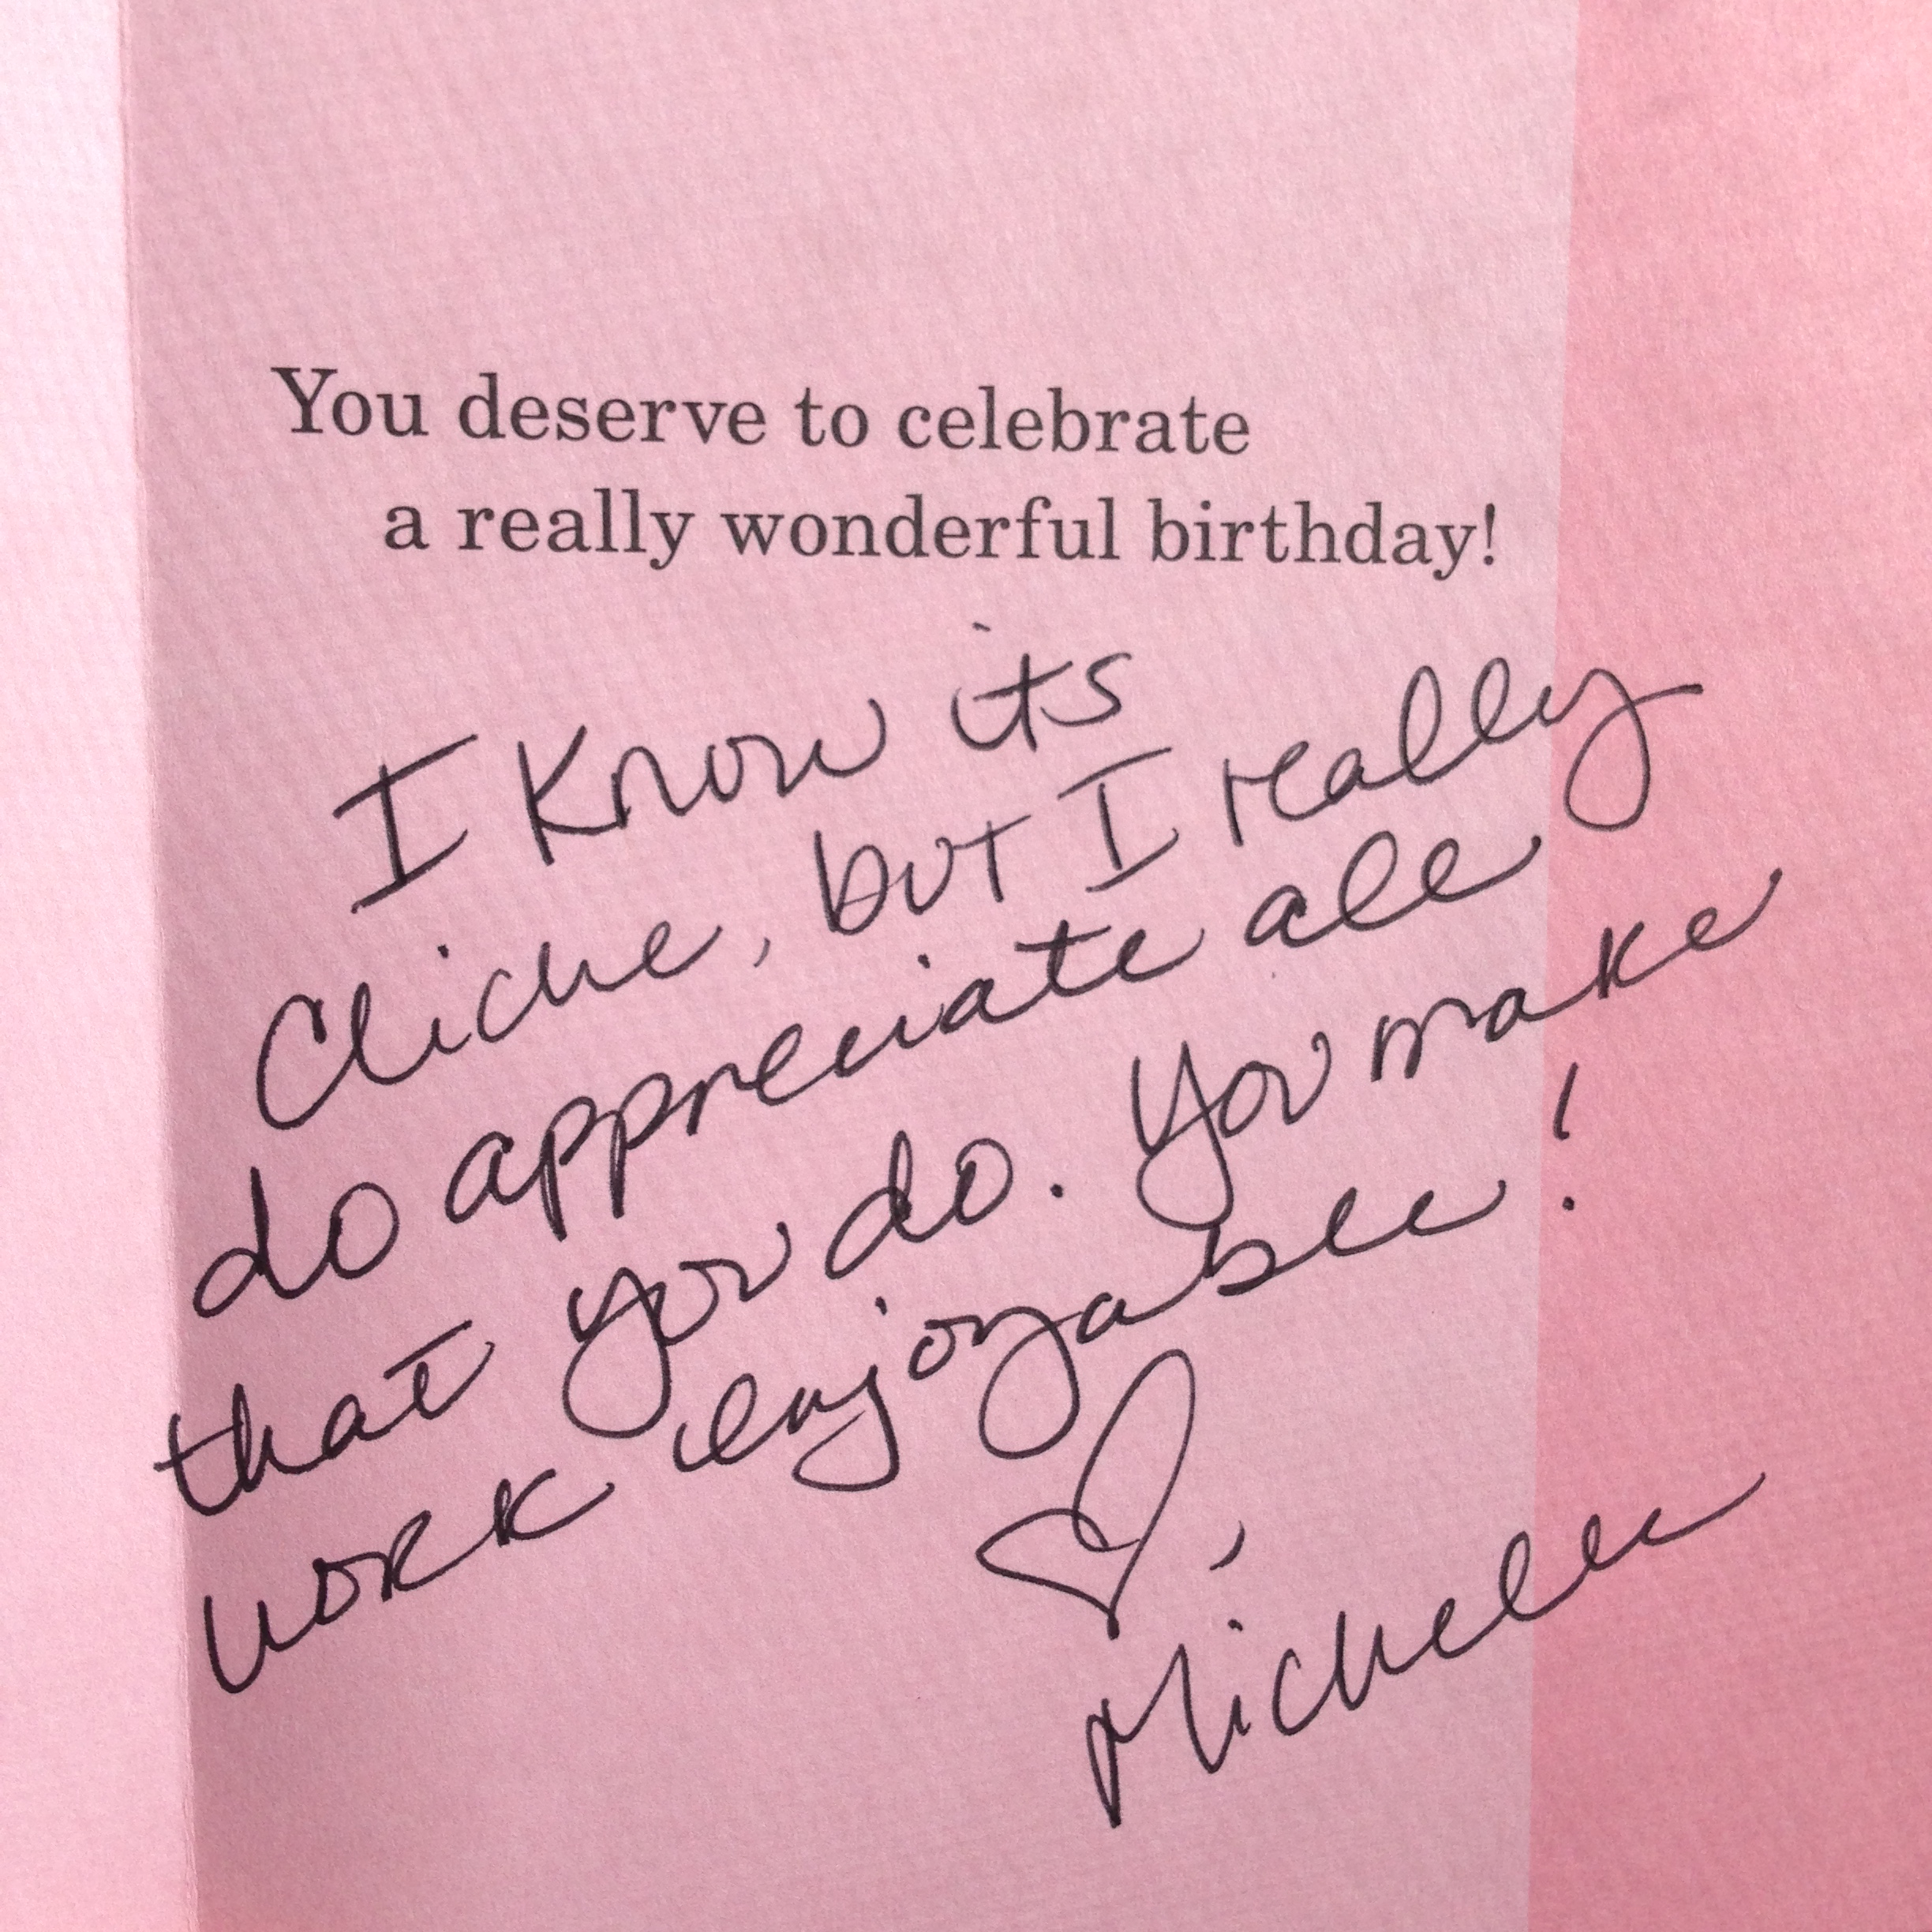 You deserve to celebrate
a really wonderful birthday!
I know its
Cliche, but I really
do appreciate all
that you do. You make
work enjoyable!
♡,
Michelle